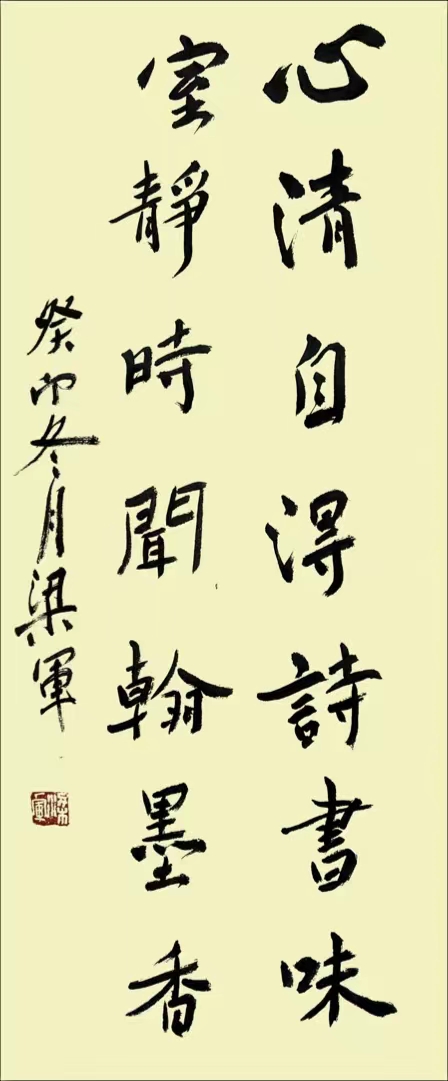 心清自得詩書味
室靜時聞翰墨香
癸卯冬月梁軍
梁軍